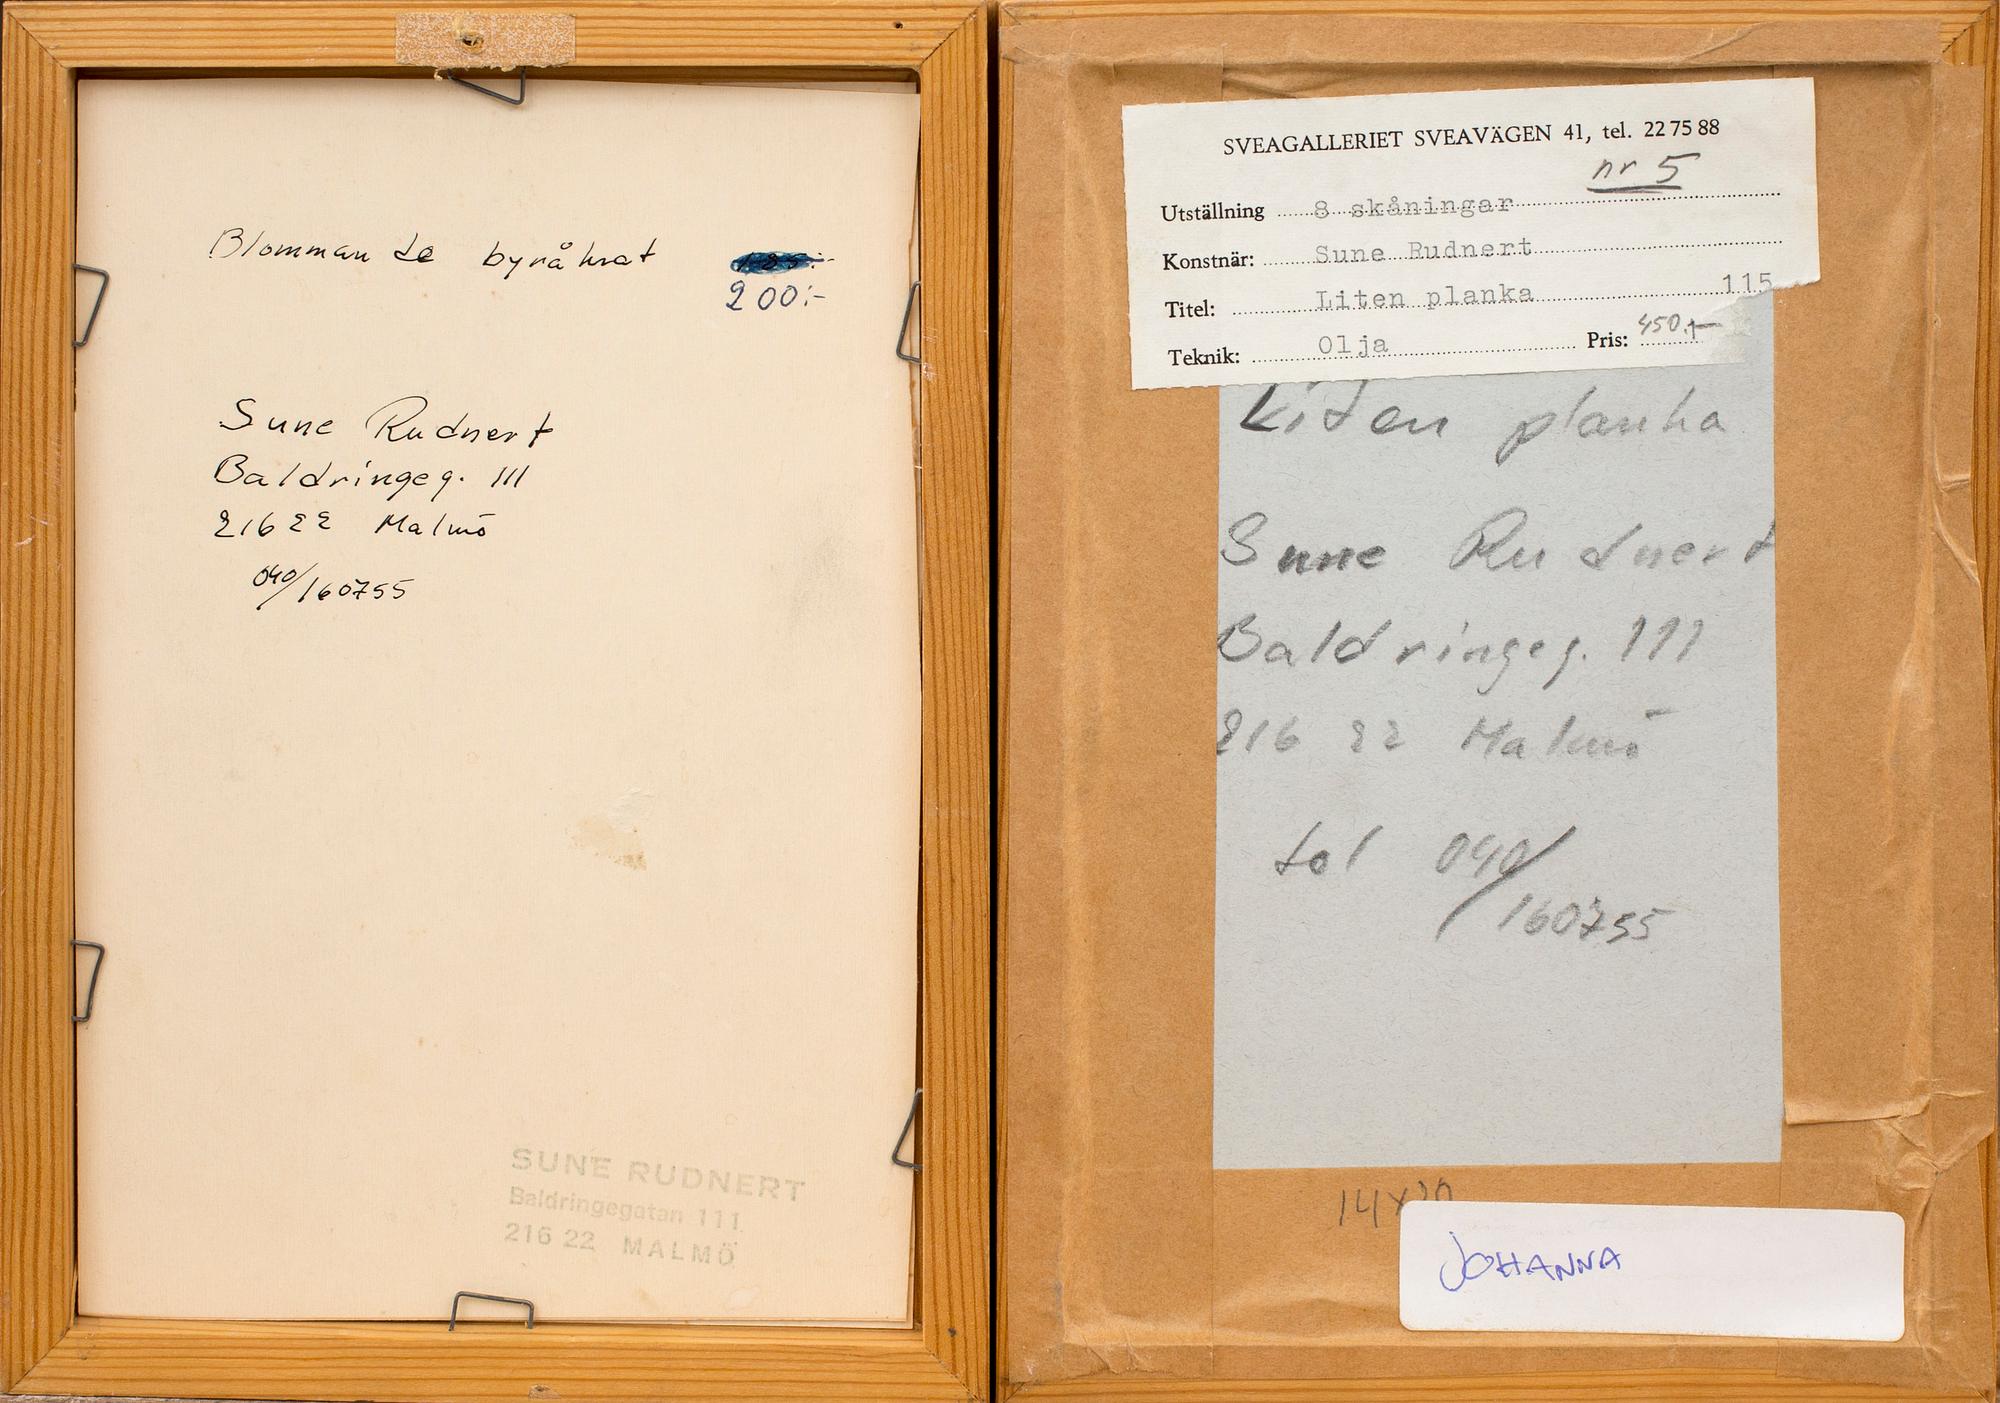 Blomman se byråkrat
200:-
Sune Rudnert
Baldringeg. 111
216 22 Malmö
040/160755
SUNE RUDNERT
Baldringegatan 111
216 22 MALMÖ
SVEAGALLERIET SVEAVÄGEN 41, tel. 22 75 88
nr 5
Utställning 8 skåningar
Konstnär: Sune Rudnert
Titel: Liten planka 115
Teknik: Olja Pris: 450:-
Liten planka
Sune Rudnert
Baldringeg. 111
216 22 Malmö
tel 040/
160755
14x20
JOHANNA